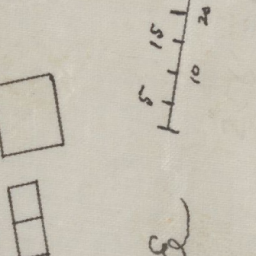 5
10
15
20